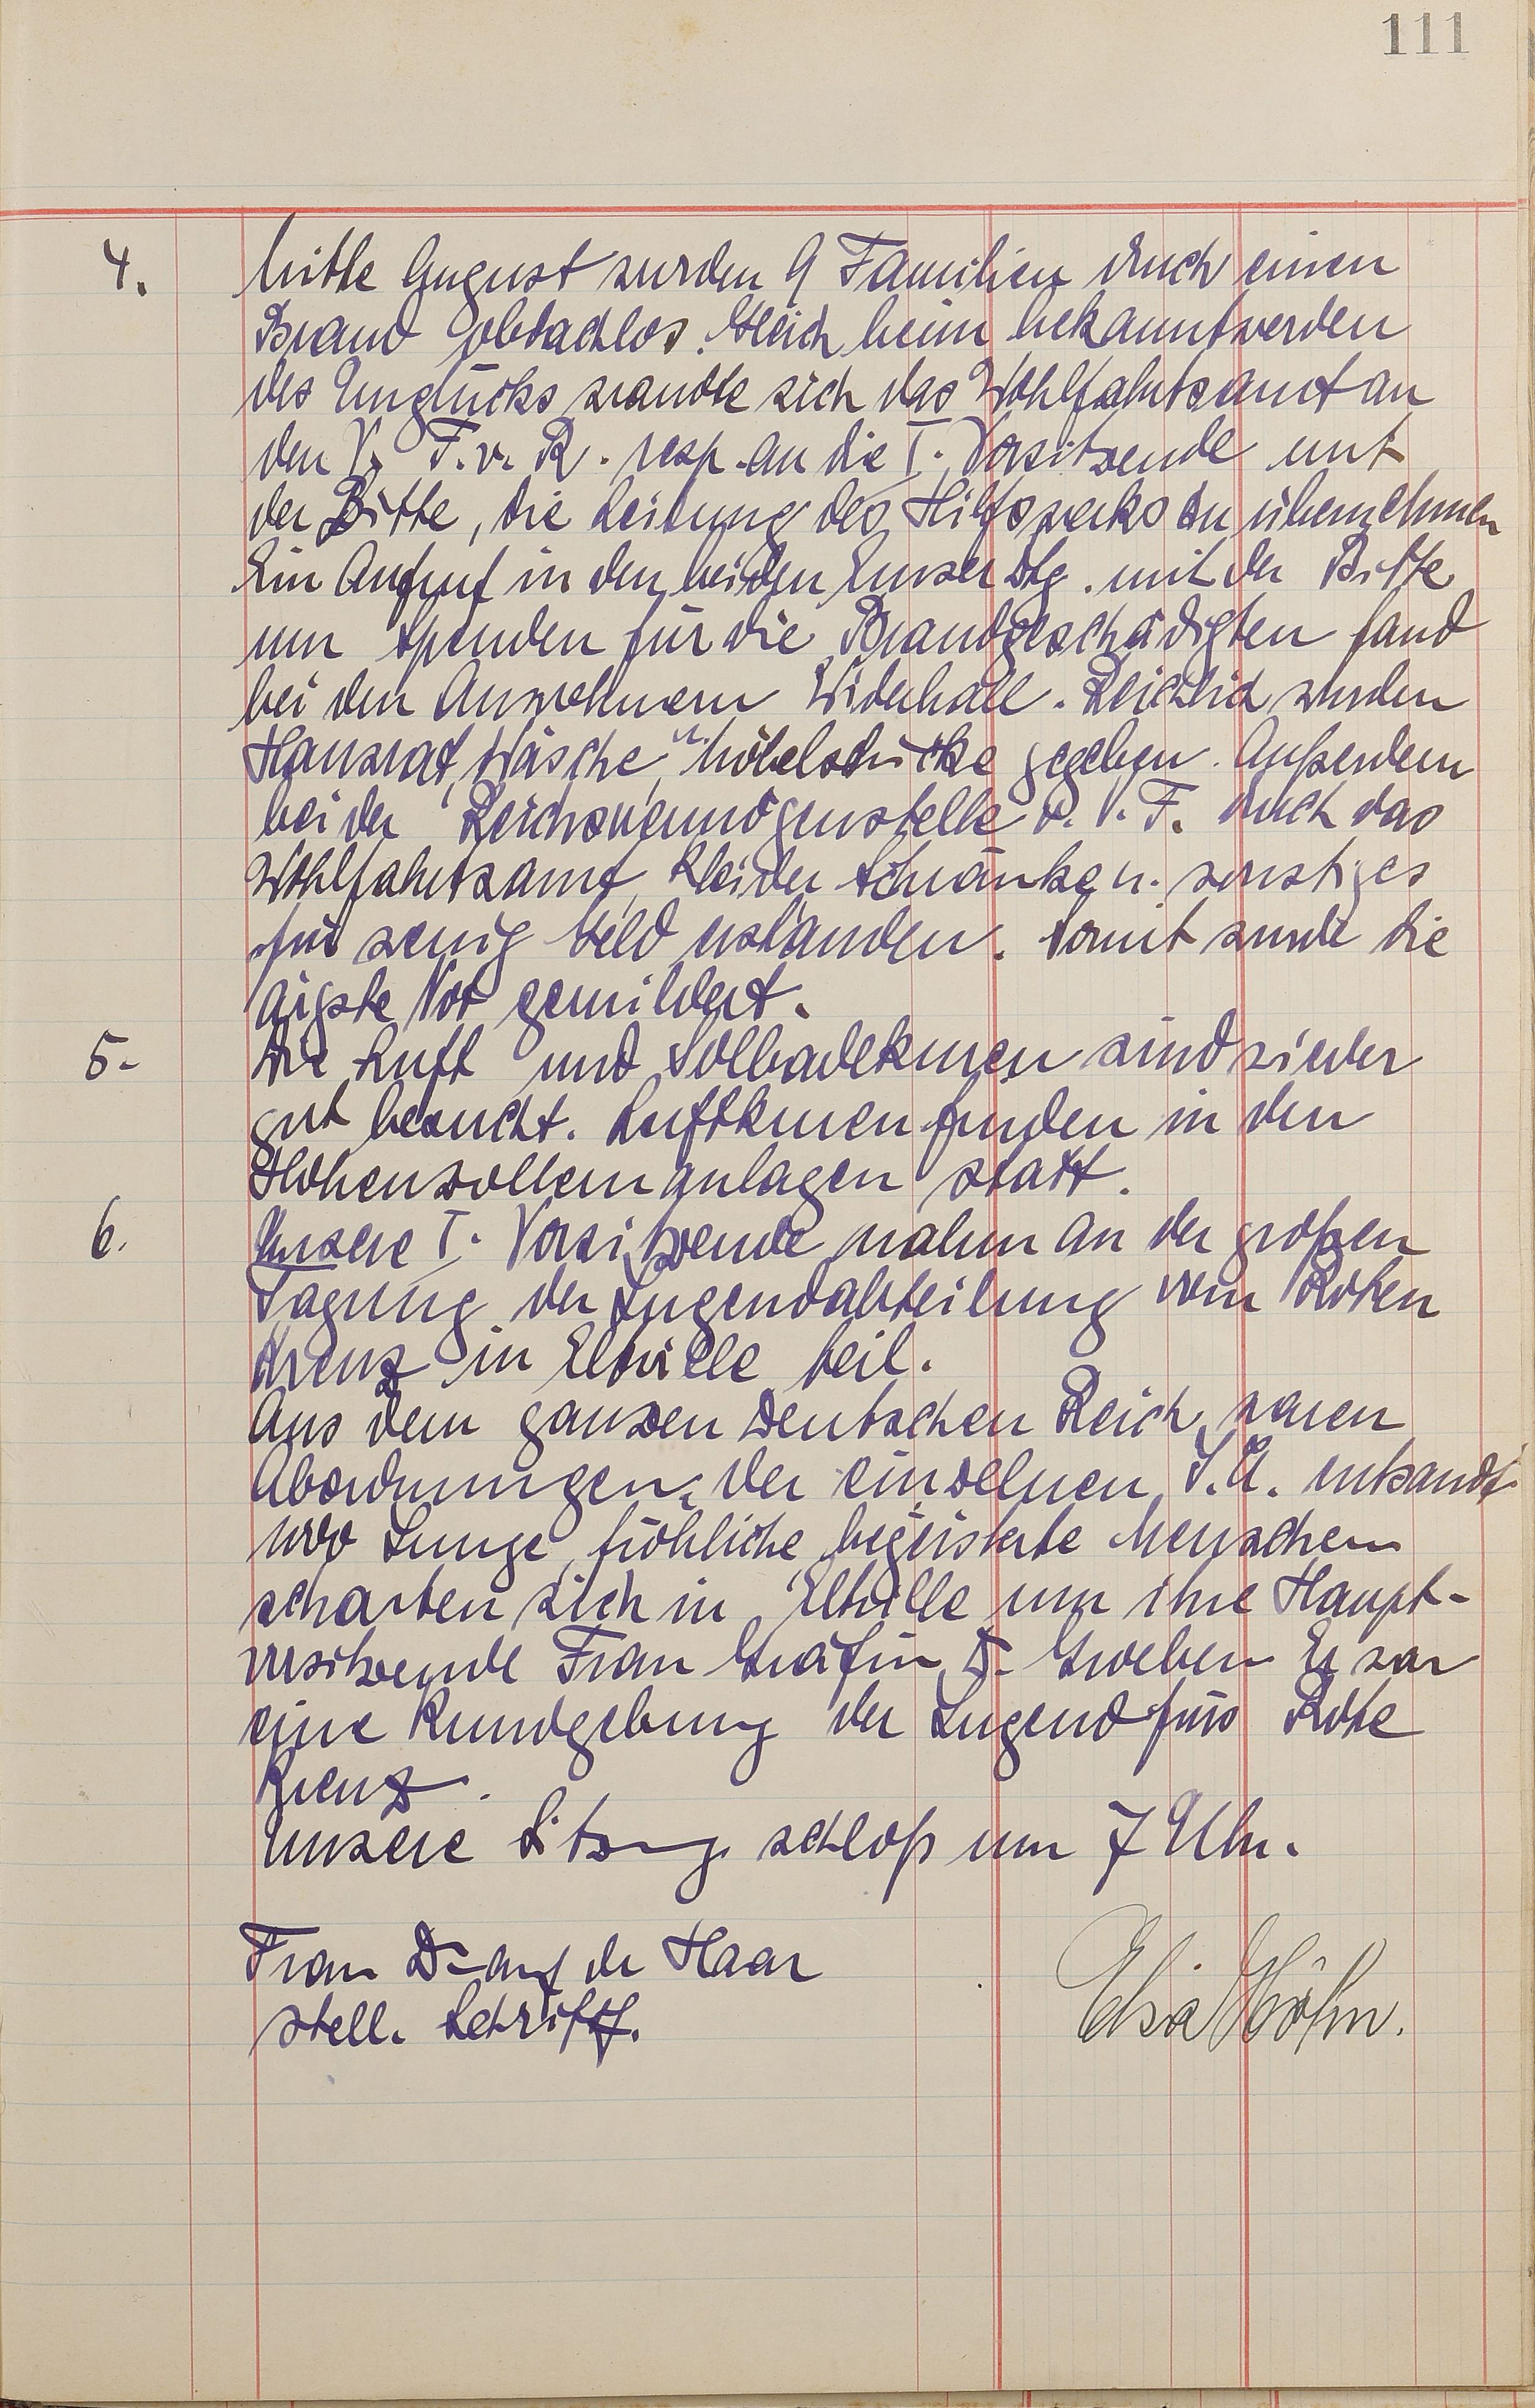 111
4. Mitte August wurden 9 Familien durch einen
Brand obdachlos. Gleich beim bekanntwerden
des Unglücks wandte sich das Wohlfahrtsamt an
den V. F. v. R. resp. an die I. Vorsitzende mit
der Bitte, die Leitung des Hilfswerks zu übernehmen
Ein Aufruf in den beiden Emser Ztg. mit der Bitte
um Spenden für die Brandgeschädigten fand
bei den Anwohnern Widerhall. Reichlich wurden
Hausrat, Wäsche, u. Möbelstücke gegeben. Außerdem
bei der Reichsvermögenstelle v. V. F. durch das
Wohlfahrtsamt, Kleider Schränke u. sonstiges
für wenig Geld erstanden. Somit wurde die
ärgste Not gemildert.
5. Die Luft und Solbadekuren sind wieder
gut besucht. Luftkuren finden in den
Hohenzollernanlagen statt.
6. Unsere I. Vorsitzende nahm an der großen
Tagung der Jugendabteilung vom Roten
Kreuz in Eltville teil.
Aus dem ganzen Deutschen Reich waren
Abordnungen der einzelnen J.A. entsandt
Junge, fröhliche, begeisterte Menschen
scharten sich in Eltville um ihre Haupt-
vorsitzende Frau Gräfin v. Groeben Es war
eine Kundgebung der Jugend fürs Rote
Kreuz.
Unsere Sitzung schloß um 7 Uhr.
Frau Dr. auf der Haar
stell. Schriftf.
Elise Höhn.